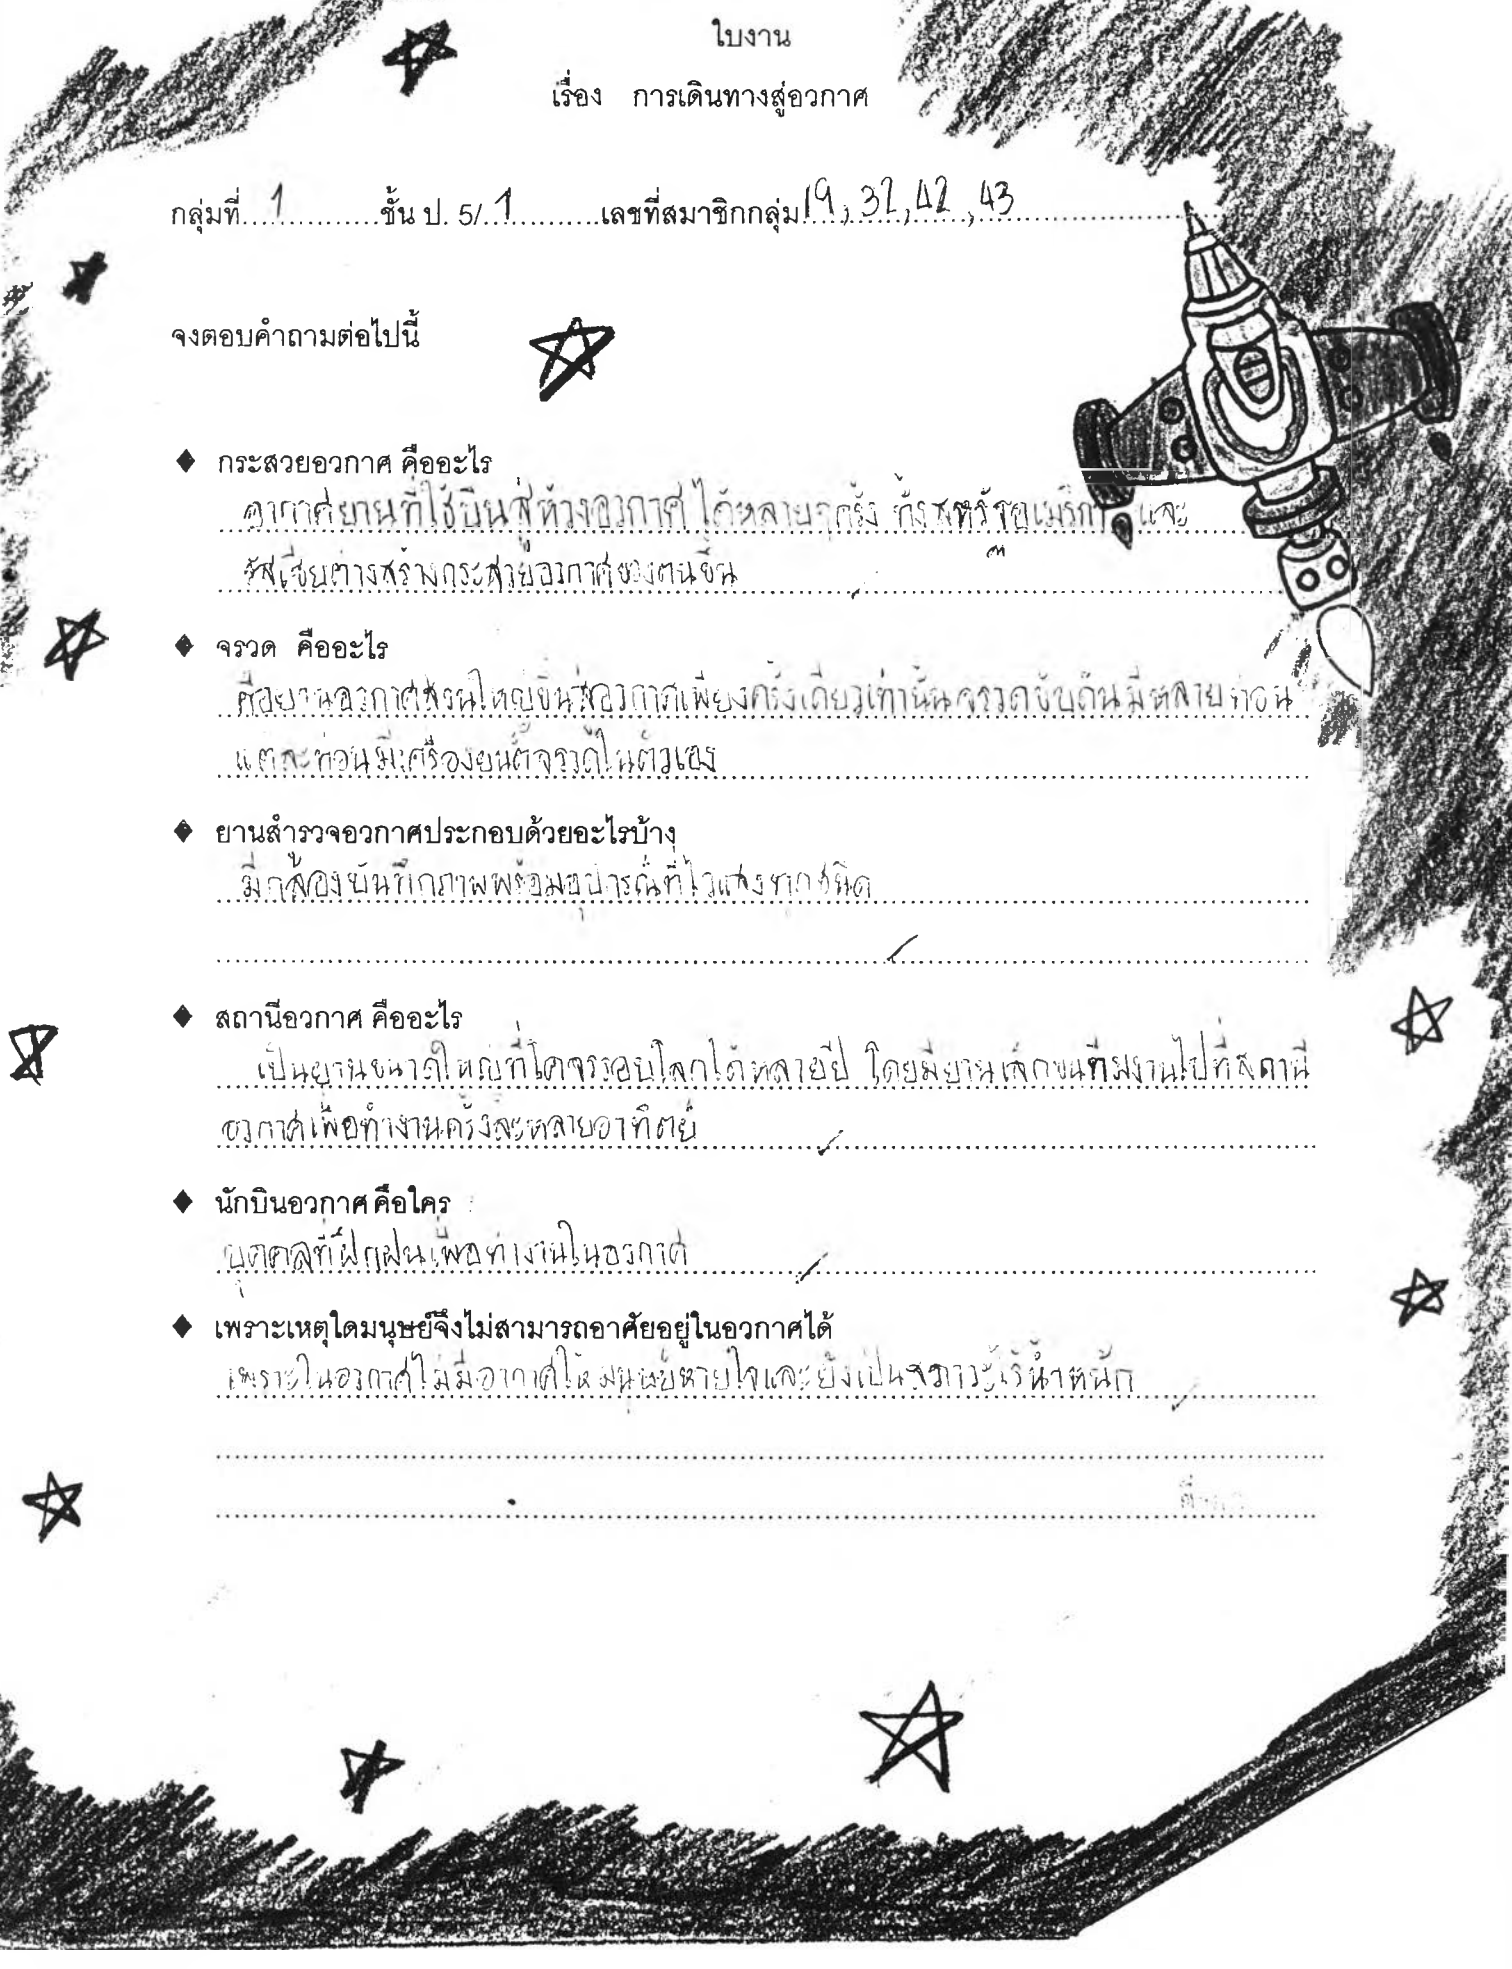 ใบงาน
เรื่อง การเดินทางสู่อวกาศ
กลุ่มที่ 1 ชั้น ป. 5/ 1 เลขที่สมาชิกกลุ่ม 19, 32, 42, 43
จงตอบคำถามต่อไปนี้
♦ กระสวยอวกาศ คืออะไร
อากาศยานที่ใช้บินสู่ห้วงอวกาศได้หลายๆครั้ง ทั้งสหรัฐอเมริกา และ
รัสเซียต่างสร้างกระสวยอวกาศของตนขึ้น
♦ จรวด คืออะไร
คือยานอวกาศส่วนใหญ่ขึ้นสู่อวกาศเพียงครั้งเดียวเท่านั้นจรวดขับดันมีหลายท่อน
แต่ละท่อนมีเครื่องยนต์จรวดในตัวเอง
♦ ยานสำรวจอวกาศประกอบด้วยอะไรบ้าง
มีกล้องบันทึกภาพพร้อมอุปกรณ์ที่ไวแสงทุกชนิด
♦ สถานีอวกาศ คืออะไร
เป็นยานขนาดใหญ่ที่โคจรรอบโลกได้หลายปี โดยมียานเล็กขนทีมงานไปที่สถานี
อวกาศเพื่อทำงานครั้งละหลายอาทิตย์
♦ นักบินอวกาศ คือใคร
บุคคลที่ฝึกฝนเพื่อทำงานในอวกาศ
♦ เพราะเหตุใดมนุษย์จึงไม่สามารถอาศัยอยู่ในอวกาศได้
เพราะในอวกาศไม่มีอากาศให้มนุษย์หายใจและยังเป็นสภาวะไร้น้ำหนัก